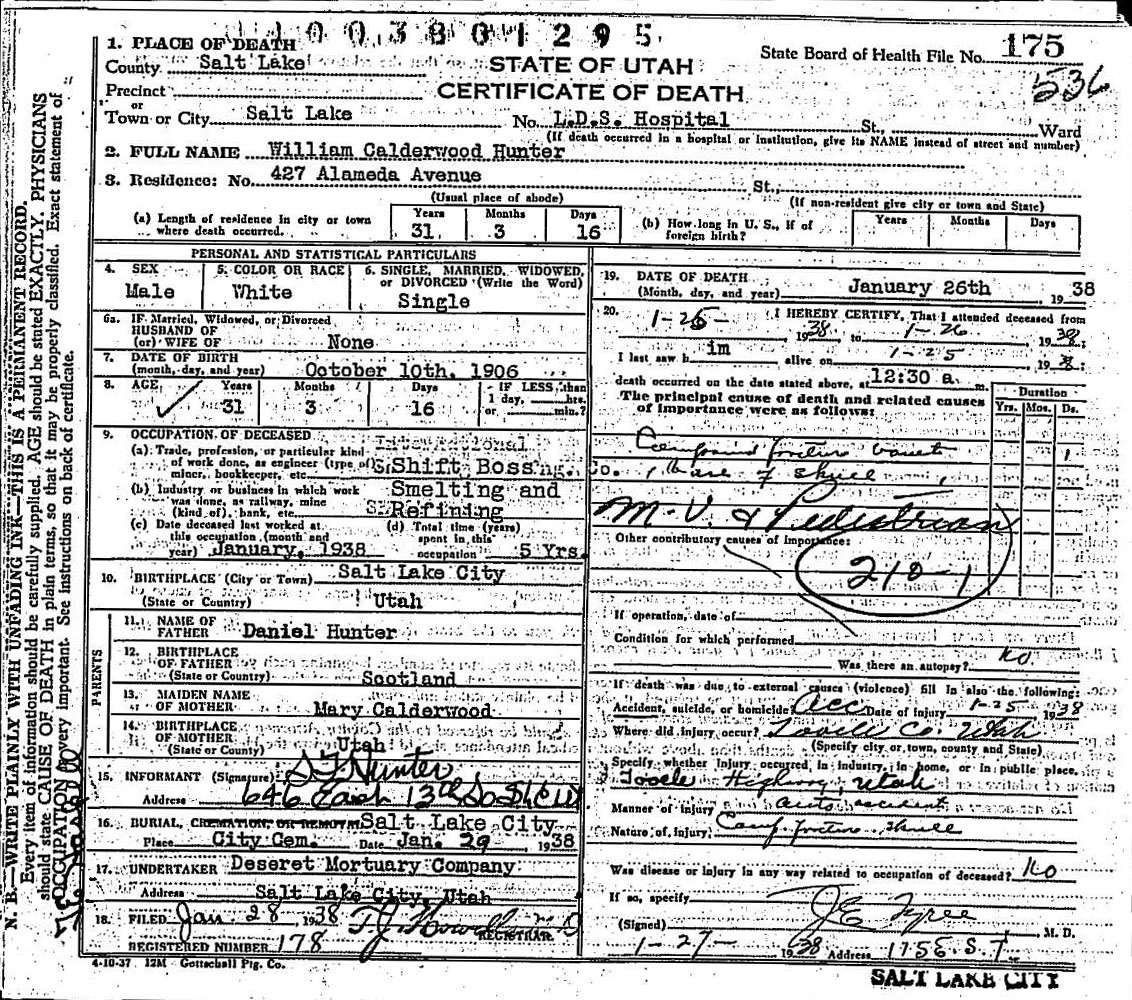 1003801295
1. PLACE OF DEATH
County Salt Lake
STATE OF UTAH
State Board of Health File No. 175
536
Precinct
CERTIFICATE OF DEATH
or
Town or City Salt Lake No. L.D.S. Hospital St., Ward
(If death occurred in a hospital or institution, give its NAME instead of street and number)
2. FULL NAME William Calderwood Hunter
3. Residence: No. 427 Alameda Avenue St.,
(Usual place of abode) (If non-resident give city or town and State)
(a) Length of residence in city or town where death occurred. Years 31 Months 3 Days 16
(b) How long in U. S., if of foreign birth? Years Months Days
PERSONAL AND STATISTICAL PARTICULARS
4. SEX Male
5. COLOR OR RACE White
6. SINGLE, MARRIED, WIDOWED, or DIVORCED (Write the Word) Single
6a. IF Married, Widowed, or Divorced
HUSBAND OF
(or) WIFE OF None
7. DATE OF BIRTH
(month, day, and year) October 10th, 1906
8. AGE Years 31 Months 3 Days 16 IF LESS than 1 day, hrs. or min.?
9. OCCUPATION OF DECEASED
(a) Trade, profession, or particular kind of work done, as engineer (type of), miner, bookkeeper, etc. International Shift Boss Co.
(b) Industry or business in which work was done, as railway, mine (kind of), bank, etc. Smelting and Refining
(c) Date deceased last worked at this occupation (month and year) January, 1938
(d) Total time (years) spent in this occupation 5 Yrs.
10. BIRTHPLACE (City or Town) Salt Lake City
(State or Country) Utah
PARENTS
11. NAME OF FATHER Daniel Hunter
12. BIRTHPLACE OF FATHER
(State or Country) Scotland
13. MAIDEN NAME OF MOTHER Mary Calderwood
14. BIRTHPLACE OF MOTHER
(State or County) Utah
15. INFORMANT (Signature) Hunter
Address 646 East 13th So S L C
16. BURIAL, CREMATION, OR REMOVAL Salt Lake City
Place City Cem. Date Jan. 29 1938
17. UNDERTAKER Deseret Mortuary Company
Address Salt Lake City, Utah
18. FILED Jan. 28 1938
REGISTRAR
REGISTERED NUMBER 178
4-10-37 12M Gottschall Ptg. Co.
19. DATE OF DEATH
(Month, day, and year) January 26th 1938
20. I HEREBY CERTIFY, That I attended deceased from
1-25- 1938 to 1-26 1938;
I last saw him alive on 1-25 1938;
death occurred on the date stated above, at 12:30 a m.
The principal cause of death and related causes of importance were as follows:
Duration
Yrs. Mos. Ds.
Compound fracture vault 1
base of skull
M.V. & Pedestrian
Other contributory causes of importance:
210-1
If operation, date of
Condition for which performed
Was there an autopsy? no
If death was due to external causes (violence) fill in also the following:
Accident, suicide, or homicide Acc Date of Injury 1-25 1938
Where did injury occur? Tooele Co. Utah
(Specify city or town, county and State)
Specify whether Injury occurred, in industry, in home, or in public place.
Tooele Highway, Utah
Manner of injury auto accident
Nature of injury Comp. fracture skull
Was disease or injury in any way related to occupation of deceased? No
If so, specify
(Signed) J E Tyree M. D.
1-27- 1938 Address 175 E. S. T.
SALT LAKE CITY
N. B.—WRITE PLAINLY WITH UNFADING INK—THIS IS A PERMANENT RECORD.
Every item of information should be carefully supplied. AGE should be stated EXACTLY. PHYSICIANS
should state CAUSE OF DEATH in plain terms, so that it may be properly classified. Exact statement of
OCCUPATION is very important. See instructions on back of certificate.